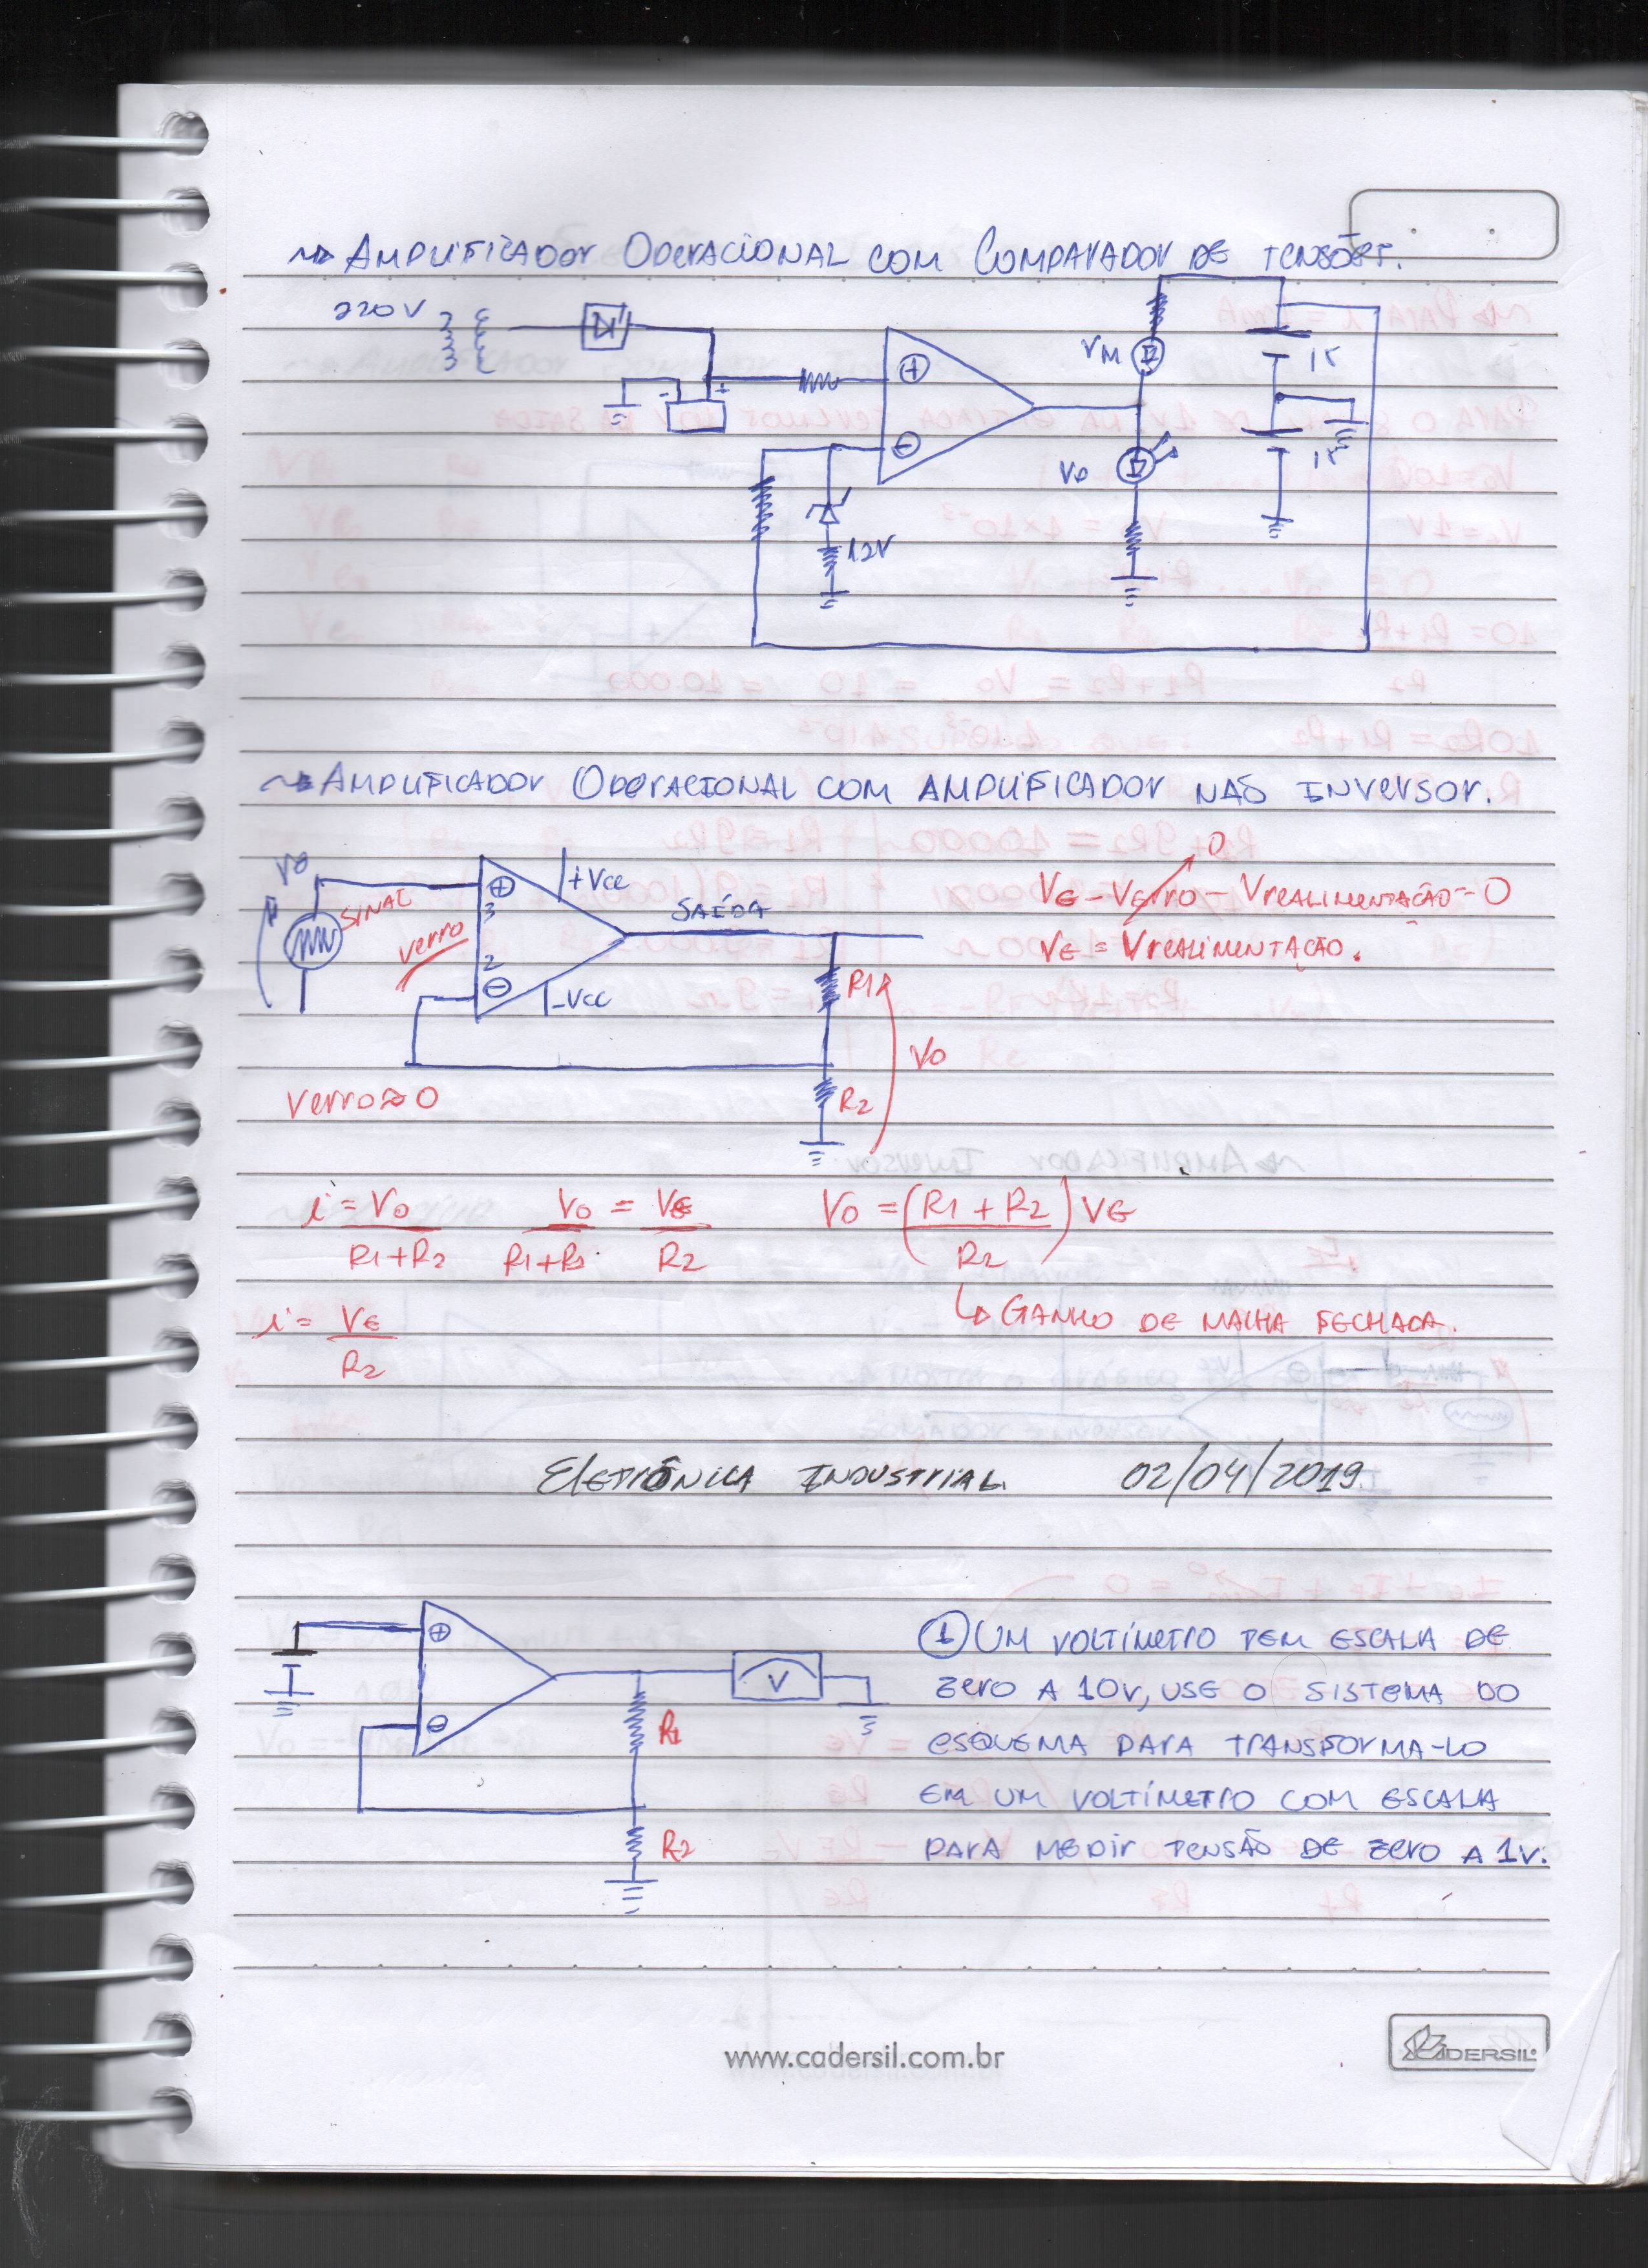 ~> AMPLIFICADOR OPERACIONAL COM COMPARADOR DE TENSÕES.
220V
+
-
+
-
12V
VM
VD
15
15
~> AMPLIFICADOR OPERACIONAL COM AMPLIFICADOR NÃO INVERSOR.
VE
SINAL
Verro
+
3
2
-
+Vcc
-Vcc
SAÍDA
R1
R2
Vo
Verro≈0
0
VE - Verro - Vrealimentação = 0
VE = Vrealimentação.
i = Vo/R1+R2 Vo/R1+R2 = VE/R2 Vo = (R1 + R2/R2) VE
↳ GANHO DE MALHA FECHADA.
i = VE/R2
ELETRÔNICA INDUSTRIAL. 02/04/2019.
+
-
V
R1
R2
① UM VOLTÍMETRO TEM ESCALA DE
ZERO A 10V, USE O SISTEMA DO
ESQUEMA PARA TRANSFORMA-LO
EM UM VOLTÍMETRO COM ESCALA
PARA MEDIR TENSÃO DE ZERO A 1V.
www.cadersil.com.br
CADERSIL